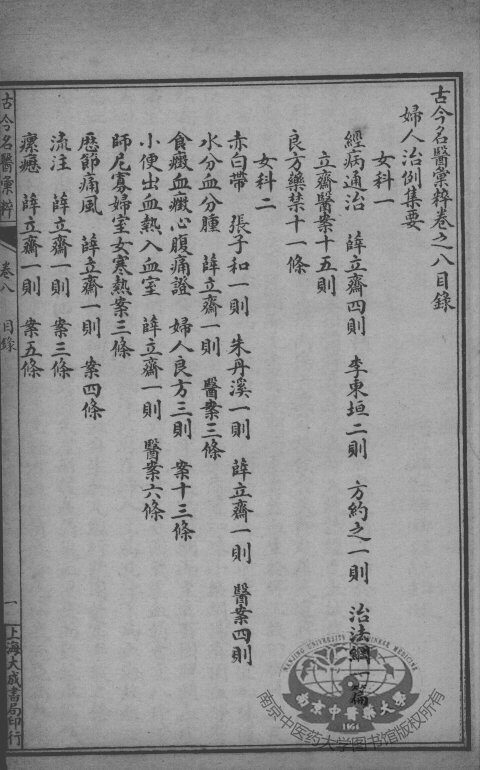 古今名醫彙粹卷之八目錄
婦人治例集要
女科一
經病通治　薛立齋四則　李東垣二則　方約之一則　治法綱一篇
立齋醫案十五則
良方藥禁十一條
女科二
赤白帶　張子和一則　朱丹溪一則　薛立齋一則　醫案四則
水分血分腫　薛立齋一則　醫案三條
食癥血癥心腹痛證　婦人良方三則　案十三條
小便出血熱入血室　薛立齋一則　醫案六條
師尼寡婦室女寒熱案三條
歷節痛風　薛立齋一則　案四條
流注　薛立齋一則　案三條
瘰癧　薛立齋一則　案五條
古今名醫彙粹　卷八　目錄　一　上海大成書局印行
NANJING UNIVERSITY OF CHINESE MEDICINE
南京中醫藥大學
1954
南京中医药大学图书馆版权所有